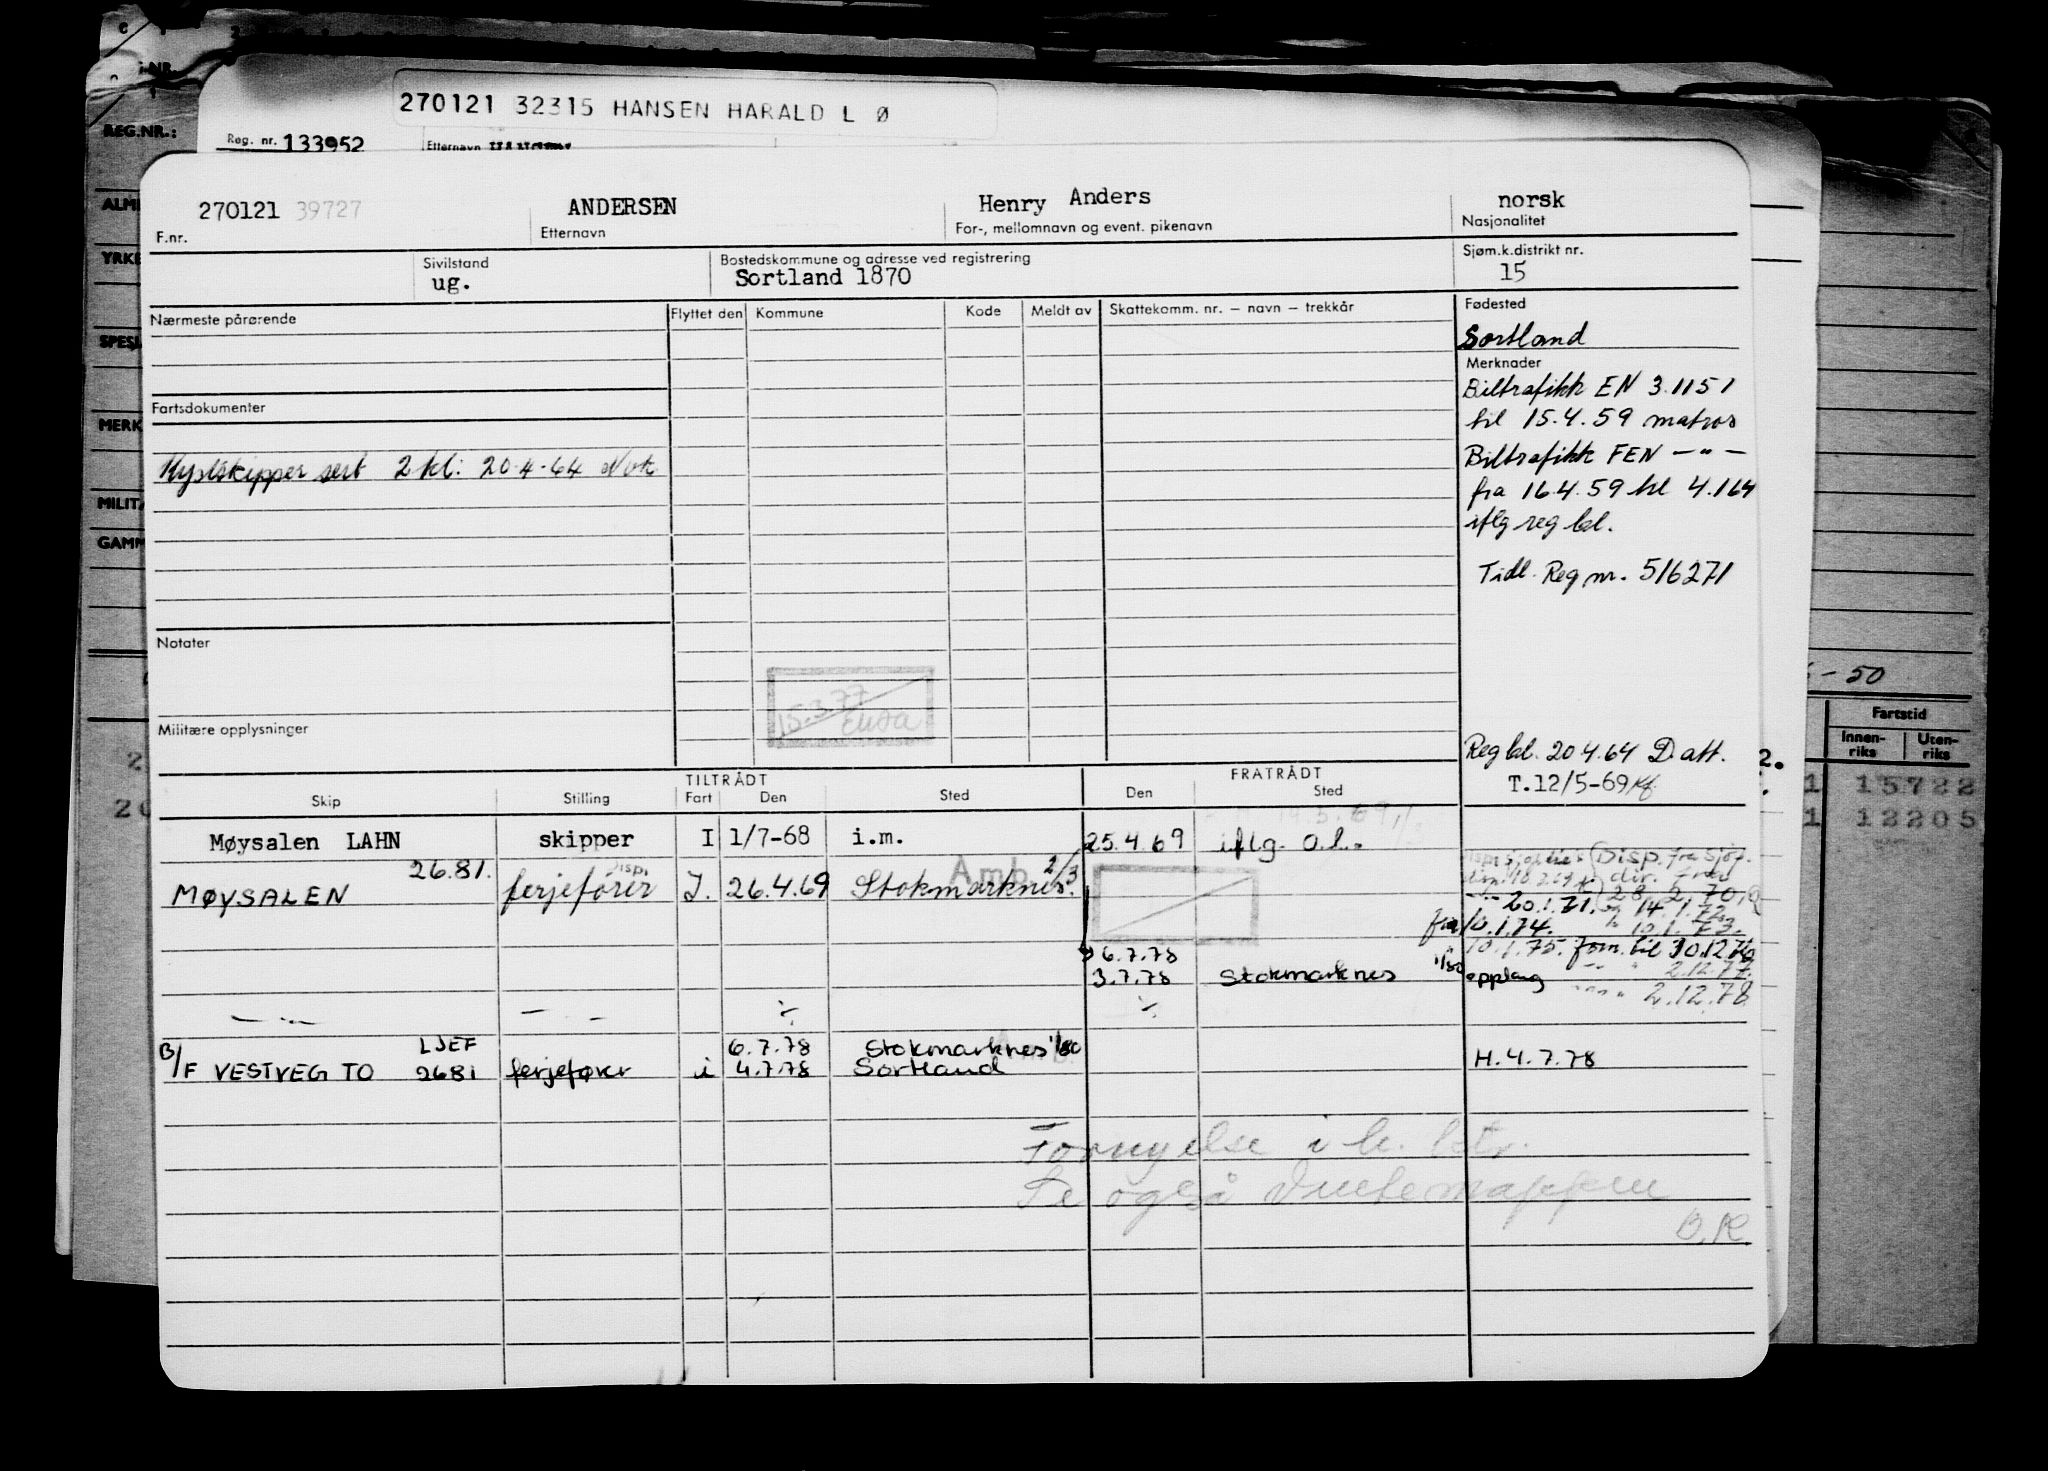 270121 32315 HANSEN HARALD L Ø
Reg. nr. 133952
Etternavn
REG.NR.:
270121 39727
ANDERSEN
Henry Anders
norsk
F.nr.
Etternavn
For-, mellomnavn og event. pikenavn
Nasjonalitet
Sivilstand
Bostedskommune og adresse ved registrering
Sjøm.k.distrikt nr.
ug.
Sortland 1870
15
Nærmeste pårørende
Flyttet den
Kommune
Kode
Meldt av
Skattekomm. nr. – navn – trekkår
Fødested
Sortland
Merknader
Biltrafikk EN 3.1151
til 15.4.59 matros
Biltrafikk FEN — " —
fra 16.4.59 til 4.164
iflg reg bl.
Tidl. Reg nr. 516271
Fartsdokumenter
Kystskipper sert 2 kl: 20.4.64 Nvk
Notater
15.3.77
Militære opplysninger
Reg bl. 20.4.64 D. att.
T. 12/5-69
TILTRÅDT
FRATRÅDT
Skip
Stilling
Fart
Den
Sted
Den
Sted
Møysalen LAHN
skipper
I
1/7-68
i.m.
25.4.69
iflg. o.l.
26.81.
Amb.
2/3
MØYSALEN
ferjefører
disp.
I.
26.4.69
Stokmarknes.
Disp. fra sjøf.
28.2.70
20.1.71. " 14.1.72.
fra 10.1.74. " 10.1.73.
10.1.75. forn. til 30.12.76
6.7.78
" 2.12.77.
3.7.78
Stokmarknes
1/80
opplag
" 2.12.78
— " —
— " —
÷
÷
B/F VESTVEGTO
LJEF
2681
ferjefører
i
6.7.78
4.7.78
Stokmarknes 1/80
Sortland
H. 4.7.78
Fornyelse i h. h.
Se også
O.K
- 50
Fartstid
Innen-
riks
Uten-
riks
1 15722
1 12205
ALM
YRKE
SPESI
MERK
MILITÆ
GAMM